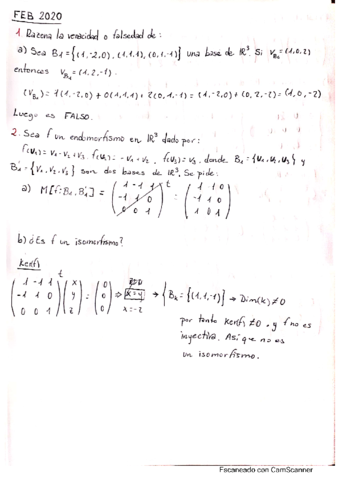 FEB 2020
1. Razona la veracidad o falsedad de:
a) Sea B₁ = {(1,-2,0), (1,1,1), (0,1,-1)} una base de ℝ³. Si v_B₁ = (1,0,2)
entonces v_B₁ = (1,2,-1).
(v_B₁) = 1(1,-2,0) + 0(1,1,1) + 2(0,1,-1) = (1,-2,0) + (0,2,-2) = (1,0,-2)
Luego es FALSO.
2. Sea f un endomorfismo en ℝ³ dado por:
f(u₁) = v₁ - v₂ + v₃, f(u₂) = -v₁ + v₂, f(u₃) = v₃, donde B₁ = {u₁, u₂, u₃} y
B₁' = {v₁, v₂, v₃} son dos bases de ℝ³. Se pide:
a) M[f: B₁, B₁'] = (1 -1 1 / -1 1 0 / 0 0 1)ᵗ = (1 -1 0 / -1 1 0 / 1 0 1)
b) ¿Es f un isomorfismo?
Ker(f)
(1 -1 1 / -1 1 0 / 0 0 1)ᵗ (x / y / z) = (0 / 0 / 0) ⇒ x = y, x = -z → {B_k = {(1,1,-1)} → Dim(k) ≠ 0
por tanto Ker(f) ≠ 0, y f no es
inyectiva. Así que no es
un isomorfismo.
Escaneado con CamScanner